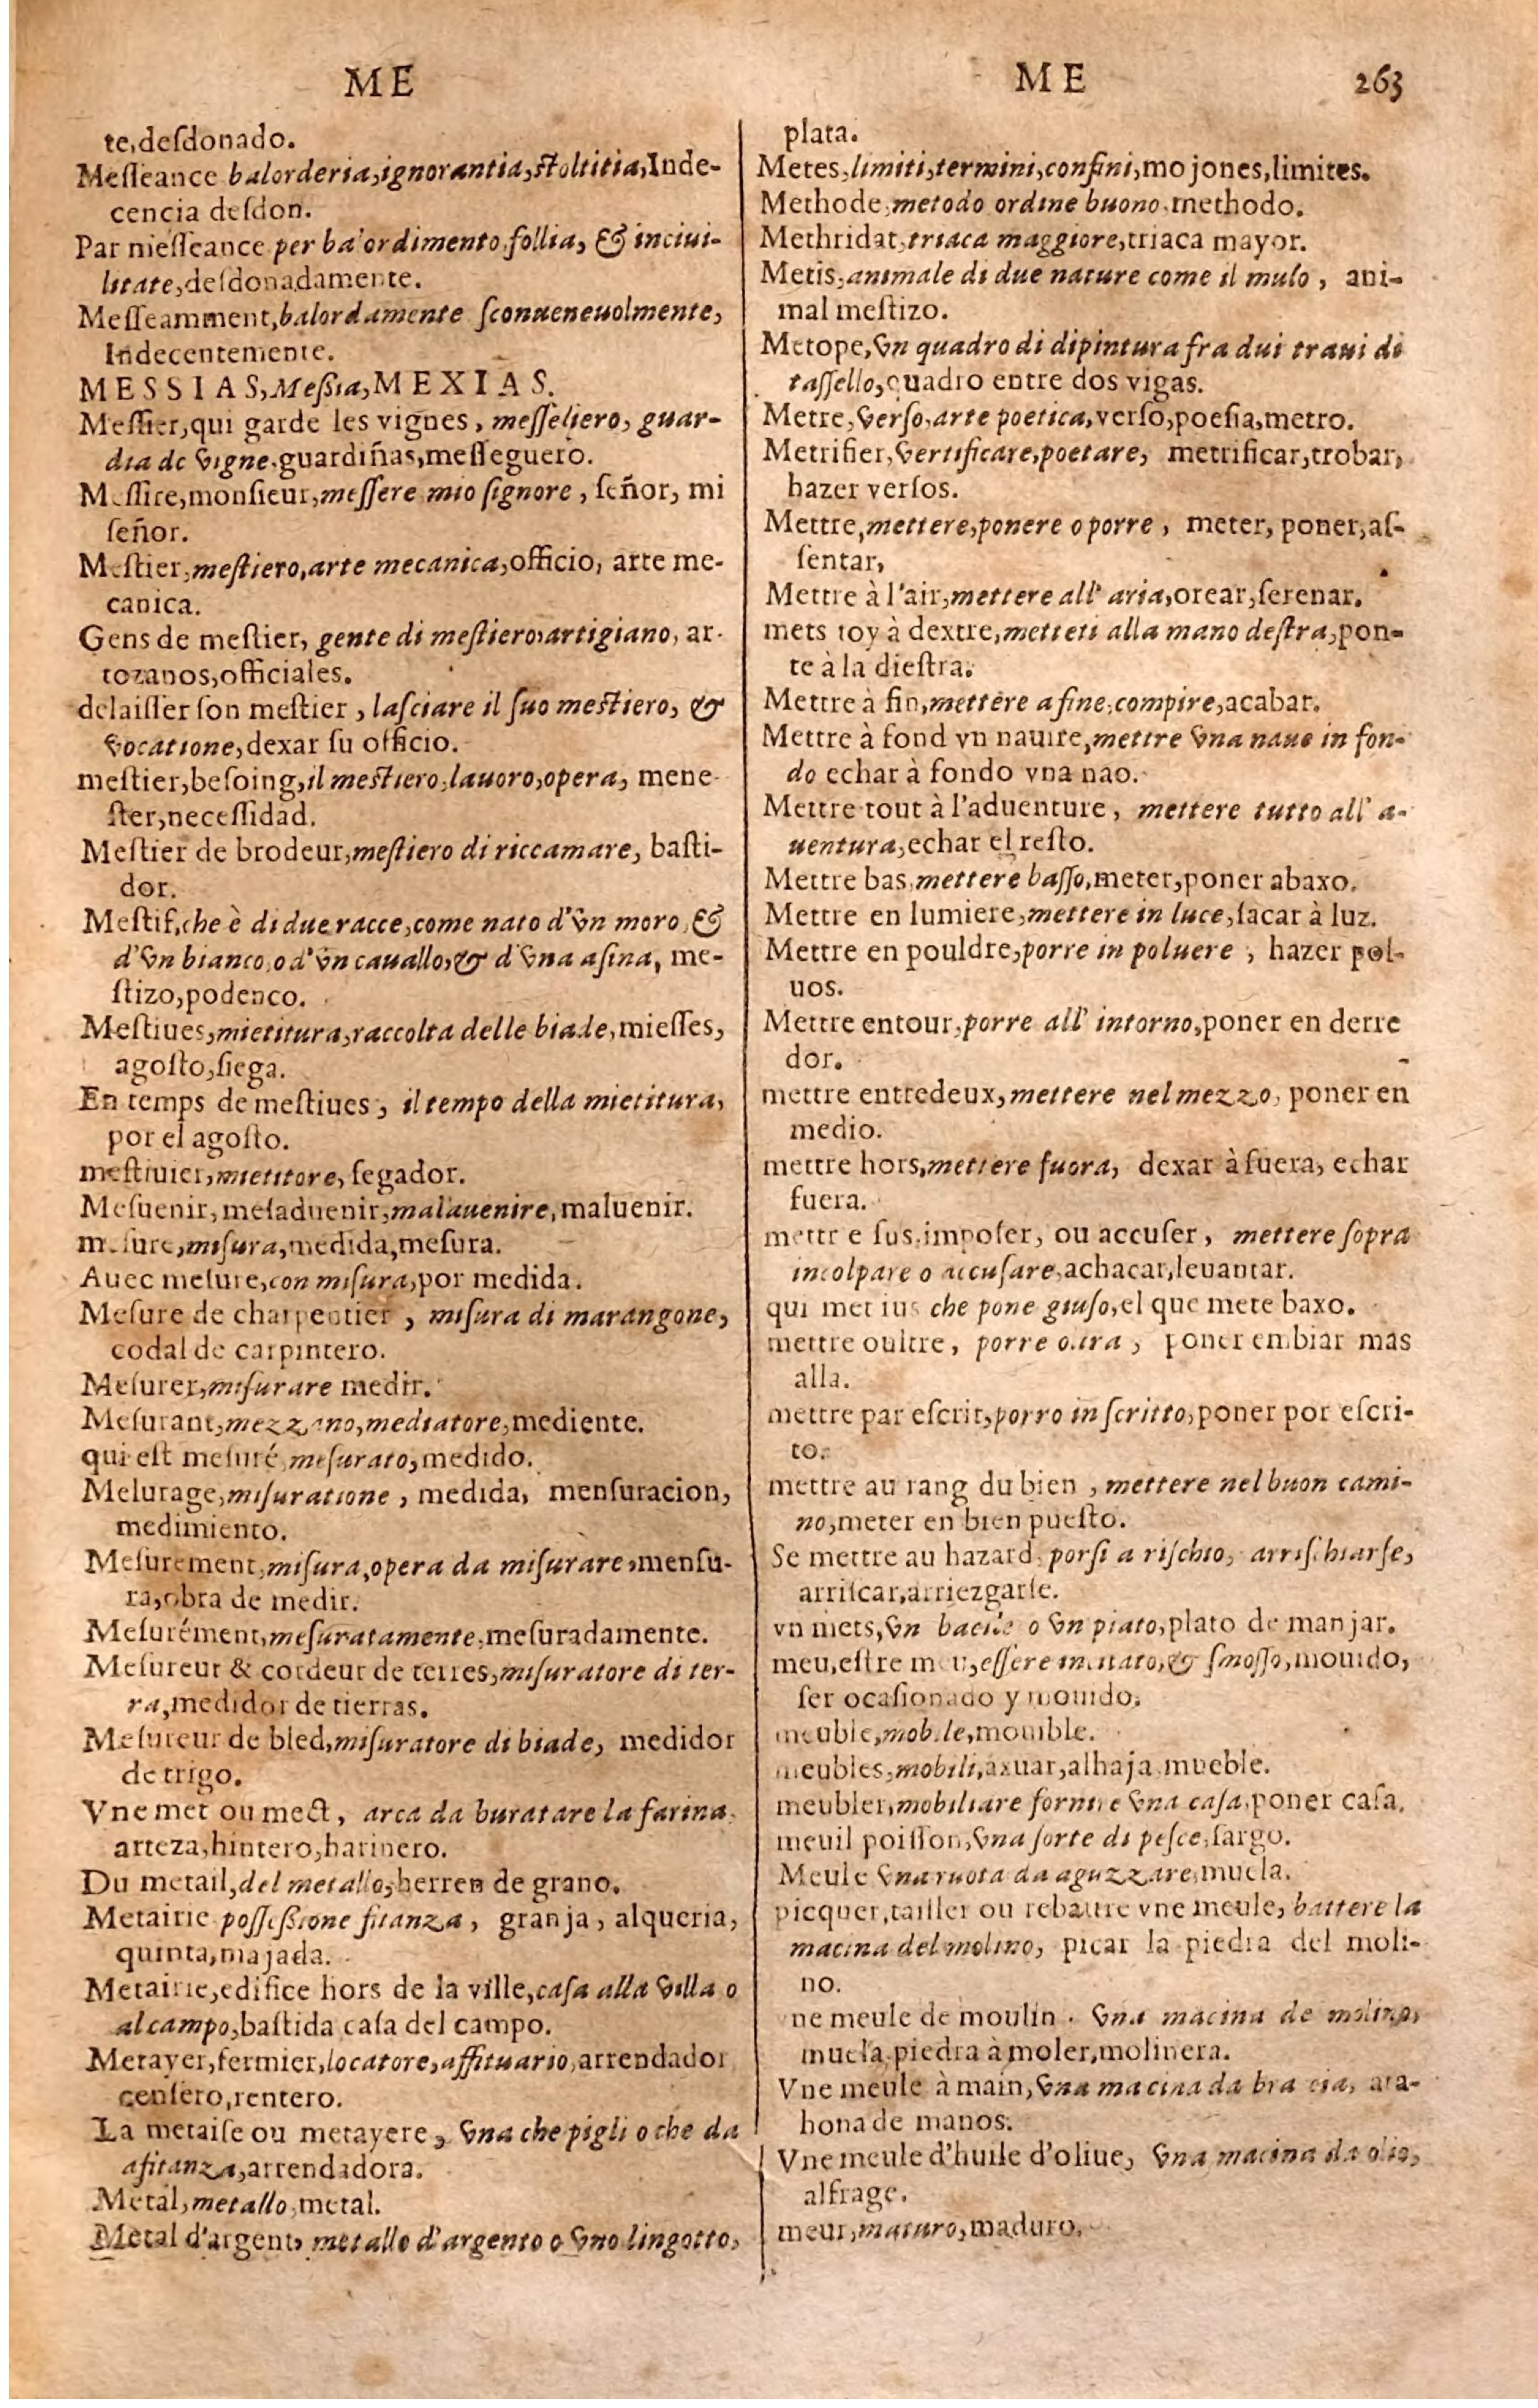 ME
te,desdonado.
Messeance balorderia,ignorantia,stoltitia,Inde-
cencia desdon.
Par messeance per ba'ordimento,follia, & inciui-
litate,desdonadamente.
Messeamment,balordamente sconueneuolmente,
Indecentemente.
MESSIAS,Messia,MEXIAS.
Messier,qui garde les vignes, messeliero, guar-
dia de vigne,guardiñas,messeguero.
Messire,monsieur,messere mio signore, señor, mi
señor.
Mestier,mestiero,arte mecanica,officio, arte me-
canica.
Gens de mestier, gente di mestiero,artigiano, ar-
tozanos,officiales.
delaisser son mestier, lasciare il suo mestiero, &
vocatione,dexar su officio.
mestier,besoing,il mestiero,lauoro,opera, mene-
ster,necessidad.
Mestier de brodeur,mestiero di riccamare, basti-
dor.
Mestif,che è di due racce,come nato d'vn moro, &
d'vn bianco,o d'vn cauallo,& d'vna asina, me-
stizo,podenco.
Mestiues,mietitura,raccolta delle biade,miesses,
agosto,siega.
En temps de mestiues, il tempo della mietitura,
por el agosto.
mestiuier,mietitore,segador.
Mesuenir,mesaduenir,mal'auenire,maluenir.
mesure,misura,medida,mesura.
Auec mesure,con misura,por medida.
Mesure de charpentier, misura di marangone,
codal de carpintero.
Mesurer,misurare medir.
Mesurant,mezzano,mediatore,mediente.
qui est mesuré,mesurato,medido.
Mesurage,misuratione, medida, mensuracion,
medimiento.
Mesurement,misura,opera da misurare,mensu-
ra,obra de medir.
Mesurément,mesuratamente,mesuradamente.
Mesureur & cordeur de terres,misuratore di ter-
ra,medidor de tierras.
Mesureur de bled,misuratore di biade, medidor
de trigo.
Vne met ou mect, arca da buratare la farina,
arteza,hintero,harinero.
Du metail,del metallo,herren de grano.
Metairie possessione fitanza, granja, alqueria,
quinta,majada.
Metairie,edifice hors de la ville,casa alla villa o
al campo,bastida casa del campo.
Metayer,fermier,locatore,affituario,arrendador
censero,rentero.
La metaise ou metayere, vna che pigli o che da
afitanza,arrendadora.
Metal,metallo,metal.
Metal d'argent, metallo d'argento o vno lingotto,
ME 263
plata.
Metes,limiti,termini,confini,mojones,limites.
Methode,metodo ordine buono,methodo.
Methridat,triaca maggiore,triaca mayor.
Metis,animale di due nature come il mulo, ani-
mal mestizo.
Metope,vn quadro di dipintura fra dui traui di
tassello,quadro entre dos vigas.
Metre,verso,arte poetica,verso,poesia,metro.
Metrifier,vertificare,poetare, metrificar,trobar,
hazer versos.
Mettre,mettere,ponere o porre, meter, poner,as-
sentar,
Mettre à l'air,mettere all' aria,orear,serenar.
mets toy à dextre,metteti alla mano destra,pon-
te à la diestra.
Mettre à fin,mettere a fine,compire,acabar.
Mettre à fond vn nauire,mettre vna naue in fon-
do echar à fondo vna nao.
Mettre tout à l'aduenture, mettere tutto all' a-
uentura,echar el resto.
Mettre bas,mettere basso,meter,poner abaxo.
Mettre en lumiere,mettere in luce,sacar à luz.
Mettre en pouldre,porre in poluere, hazer pol-
uos.
Mettre entour,porre all' intorno,poner en derre
dor.
mettre entredeux,mettere nel mezzo, poner en
medio.
mettre hors,mettere fuora, dexar à fuera, echar
fuera.
mettr e sus,imposer, ou accuser, mettere sopra
incolpare o accusare,achacar,leuantar.
qui met ius che pone giuso,el que mete baxo.
mettre oultre, porre oltra, poner embiar mas
alla.
mettre par escrit,porro in scritto,poner por escri-
to.
mettre au rang du bien, mettere nel buon cami-
no,meter en bien puesto.
Se mettre au hazard, porsi a rischio, arrischiarse,
arriscar,arriezgarse.
vn mets,vn bacile o vn piato,plato de manjar.
meu,estre meu,essere incitato,& smosso,mouido,
ser ocasionado y mouido.
meuble,mobile,mouible.
meubles,mobili,axuar,alhaja,mueble.
meubler,mobiliare fornire vna casa,poner casa.
meuil poisson,vna sorte di pesce,sargo.
Meule vna ruota da aguzzare,muela.
picquer,tailler ou rebatre vne meule, battere la
macina del molino, picar la piedra del moli-
no.
ne meule de moulin. vna macina de molino,
muela,piedra à moler,molinera.
Vne meule à main,vna macina da bracia, ata-
hona de manos.
Vne meule d'huile d'oliue, vna macina da olio,
alfrage.
meur,maturo,maduro.